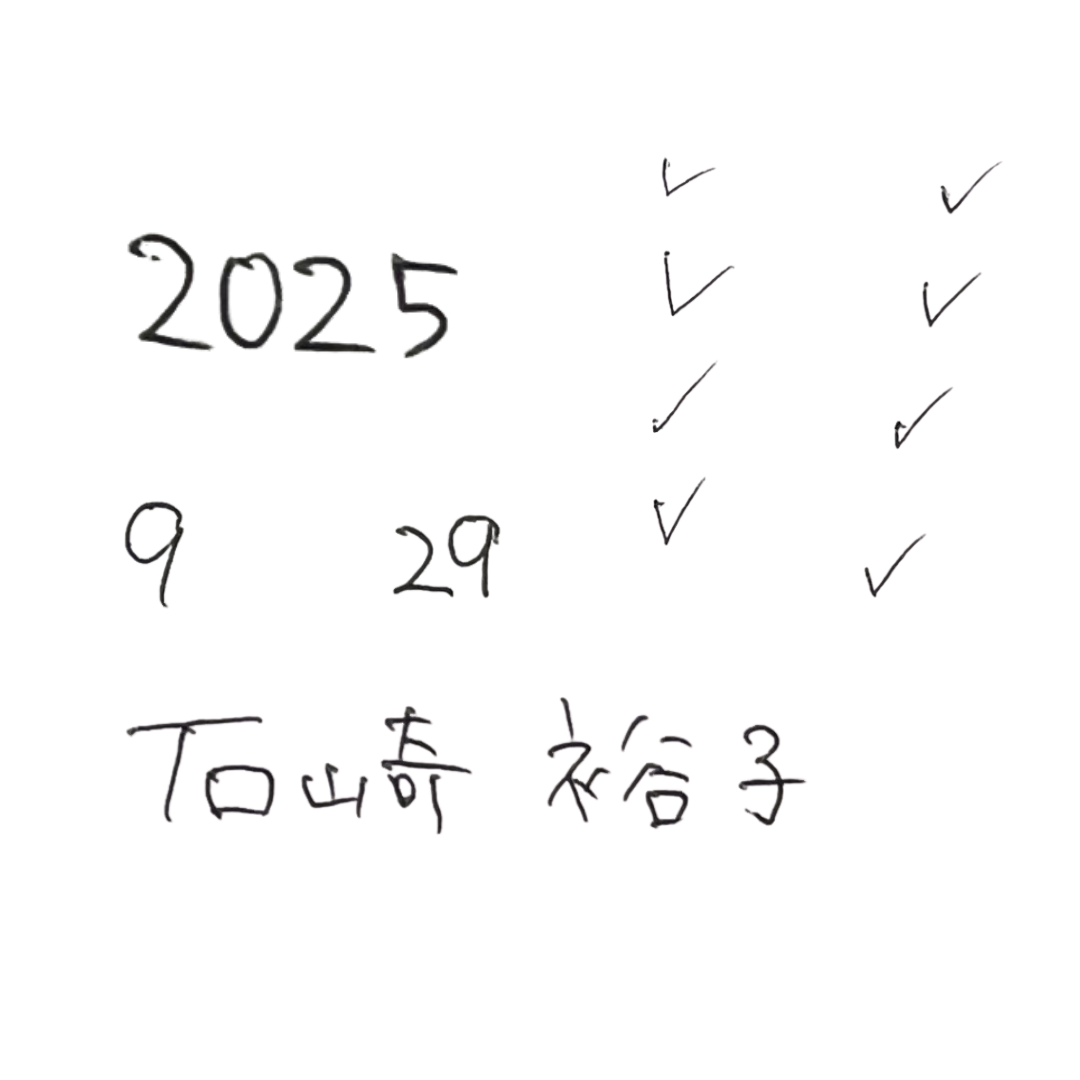 2025
9 29
石崎 裕子